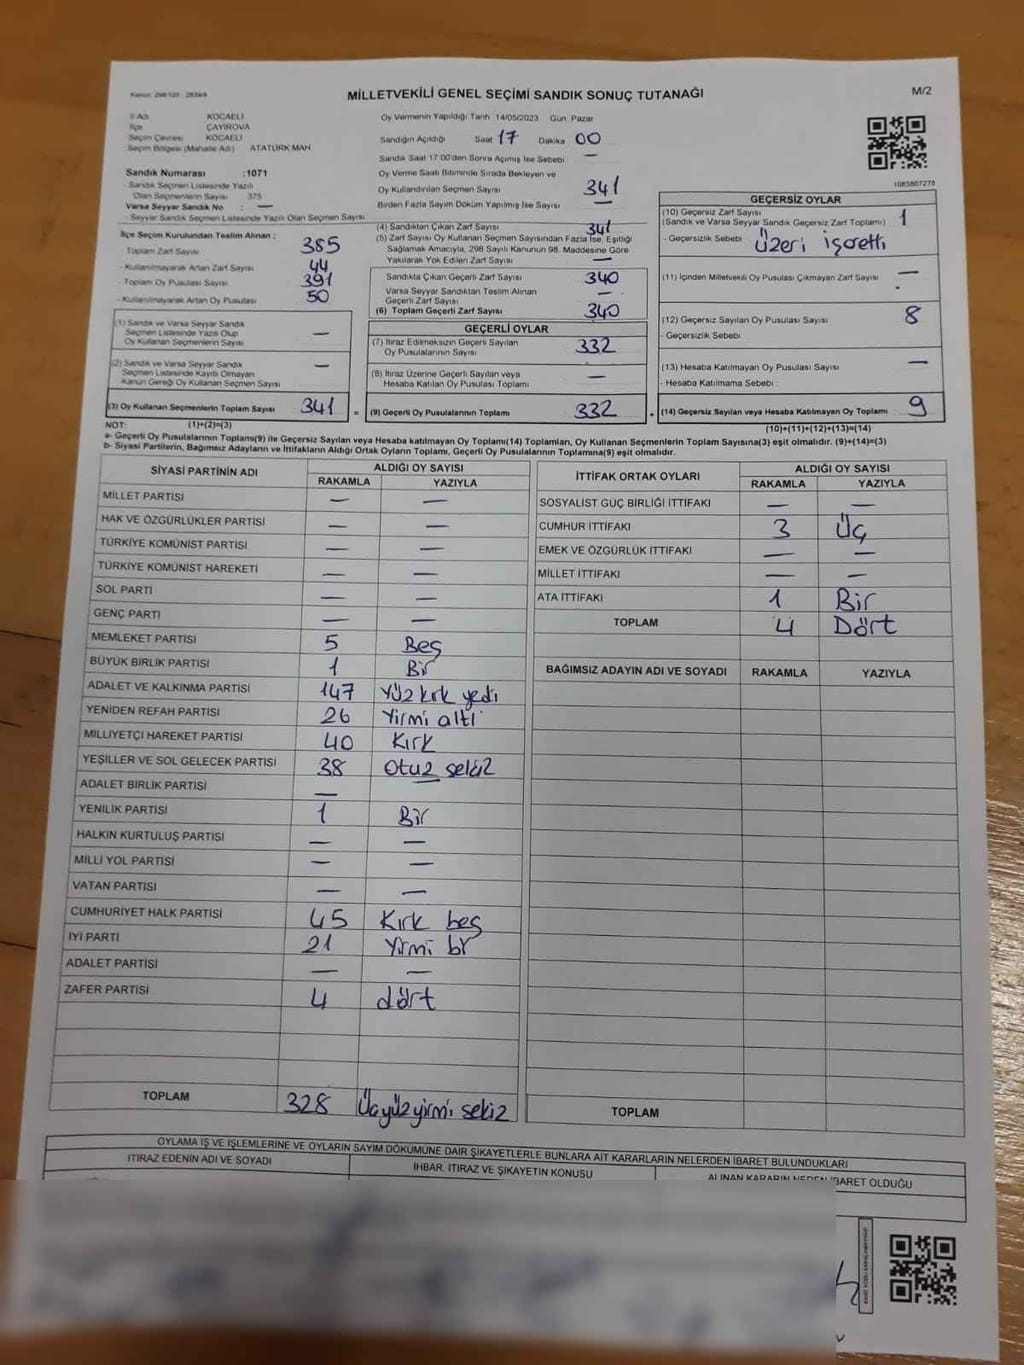 Kanun: 298/105 - 2839/4
MİLLETVEKİLİ GENEL SEÇİMİ SANDIK SONUÇ TUTANAĞI
M/2
İl Adı KOCAELİ
İlçe ÇAYIROVA
Seçim Çevresi KOCAELİ
Seçim Bölgesi (Mahalle Adı) ATATÜRK MAH
Sandık Numarası :1071
- Sandık Seçmen Listesinde Yazılı
Olan Seçmenlerin Sayısı 375
Varsa Seyyar Sandık No : —
- Seyyar Sandık Seçmen Listesinde Yazılı Olan Seçmen Sayısı
İlçe Seçim Kurulundan Teslim Alınan :
- Toplam Zarf Sayısı 385
- Kullanılmayarak Artan Zarf Sayısı 44
- Toplam Oy Pusulası Sayısı 391
- Kullanılmayarak Artan Oy Pusulası 50
(1) Sandık ve Varsa Seyyar Sandık
Seçmen Listesinde Yazılı Olup
Oy Kullanan Seçmenlerin Sayısı —
(2) Sandık ve Varsa Seyyar Sandık
Seçmen Listesinde Kayıtlı Olmayan
Kanun Gereği Oy Kullanan Seçmen Sayısı —
(3) Oy Kullanan Seçmenlerin Toplam Sayısı 341 =
(1)+(2)=(3)
Oy Vermenin Yapıldığı Tarih 14/05/2023 Gün Pazar
Sandığın Açıldığı Saat 17 Dakika 00
Sandık Saat 17.00'den Sonra Açılmış İse Sebebi —
Oy Verme Saati Bitiminde Sırada Bekleyen ve
Oy Kullandırılan Seçmen Sayısı 341
Birden Fazla Sayım Döküm Yapılmış İse Sayısı —
(4) Sandıktan Çıkan Zarf Sayısı 341
(5) Zarf Sayısı Oy Kullanan Seçmen Sayısından Fazla İse, Eşitliği
Sağlamak Amacıyla, 298 Sayılı Kanunun 98. Maddesine Göre
Yakılarak Yok Edilen Zarf Sayısı —
Sandıkta Çıkan Geçerli Zarf Sayısı 340
Varsa Seyyar Sandıktan Teslim Alınan
Geçerli Zarf Sayısı —
(6) Toplam Geçerli Zarf Sayısı 340
GEÇERLİ OYLAR
(7) İtiraz Edilmeksizin Geçerli Sayılan
Oy Pusulalarının Sayısı 332
(8) İtiraz Üzerine Geçerli Sayılan veya
Hesaba Katılan Oy Pusulası Toplamı —
(9) Geçerli Oy Pusulalarının Toplamı 332
1085807278
GEÇERSİZ OYLAR
(10) Geçersiz Zarf Sayısı
(Sandık ve Varsa Seyyar Sandık Geçersiz Zarf Toplamı) 1
- Geçersizlik Sebebi Üzeri işaretli
(11) İçinden Milletvekili Oy Pusulası Çıkmayan Zarf Sayısı —
(12) Geçersiz Sayılan Oy Pusulası Sayısı 8
- Geçersizlik Sebebi :
(13) Hesaba Katılmayan Oy Pusulası Sayısı —
- Hesaba Katılmama Sebebi :
(14) Geçersiz Sayılan veya Hesaba Katılmayan Oy Toplamı 9
(10)+(11)+(12)+(13)=(14)
NOT:
a- Geçerli Oy Pusulalarının Toplamı(9) ile Geçersiz Sayılan veya Hesaba katılmayan Oy Toplamı(14) Toplamları, Oy Kullanan Seçmenlerin Toplam Sayısına(3) eşit olmalıdır. (9)+(14)=(3)
b- Siyasi Partilerin, Bağımsız Adayların ve İttifakların Aldığı Ortak Oyların Toplamı, Geçerli Oy Pusulalarının Toplamına(9) eşit olmalıdır.
SİYASİ PARTİNİN ADI ALDIĞI OY SAYISI
RAKAMLA YAZIYLA
MİLLET PARTİSİ — —
HAK VE ÖZGÜRLÜKLER PARTİSİ — —
TÜRKİYE KOMÜNİST PARTİSİ — —
TÜRKİYE KOMÜNİST HAREKETİ — —
SOL PARTİ — —
GENÇ PARTİ — —
MEMLEKET PARTİSİ 5 Beş
BÜYÜK BİRLİK PARTİSİ 1 Bir
ADALET VE KALKINMA PARTİSİ 147 Yüz kırk yedi
YENİDEN REFAH PARTİSİ 26 Yirmi altı
MİLLİYETÇİ HAREKET PARTİSİ 40 Kırk
YEŞİLLER VE SOL GELECEK PARTİSİ 38 Otuz sekiz
ADALET BİRLİK PARTİSİ — —
YENİLİK PARTİSİ 1 Bir
HALKIN KURTULUŞ PARTİSİ — —
MİLLİ YOL PARTİSİ — —
VATAN PARTİSİ — —
CUMHURİYET HALK PARTİSİ 45 Kırk beş
İYİ PARTİ 21 Yirmi bir
ADALET PARTİSİ — —
ZAFER PARTİSİ 4 dört
TOPLAM 328 Üçyüzyirmi sekiz
İTTİFAK ORTAK OYLARI ALDIĞI OY SAYISI
RAKAMLA YAZIYLA
SOSYALİST GÜÇ BİRLİĞİ İTTİFAKI — —
CUMHUR İTTİFAKI 3 Üç
EMEK VE ÖZGÜRLÜK İTTİFAKI — —
MİLLET İTTİFAKI — —
ATA İTTİFAKI 1 Bir
TOPLAM 4 Dört
BAĞIMSIZ ADAYIN ADI VE SOYADI RAKAMLA YAZIYLA
TOPLAM
OYLAMA İŞ VE İŞLEMLERİNE VE OYLARIN SAYIM DÖKÜMÜNE DAİR ŞİKAYETLERLE BUNLARA AİT KARARLARIN NELERDEN İBARET BULUNDUKLARI
İTİRAZ EDENİN ADI VE SOYADI İHBAR, İTİRAZ VE ŞİKAYETİN KONUSU ALINAN KARARIN NEDEN İBARET OLDUĞU